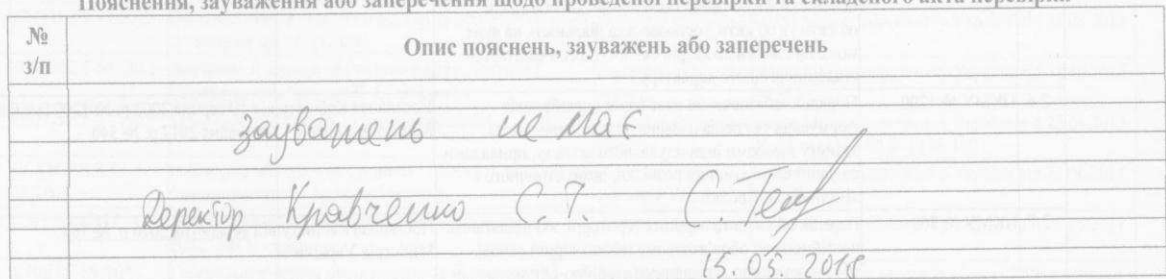 Пояснення, зауваження або заперечення щодо проведеної перевірки та складеного акта перевірки
№ з/п
Опис пояснень, зауважень або заперечень
зауважень не має
Директор Кравченко С.Т.
15.05.2018